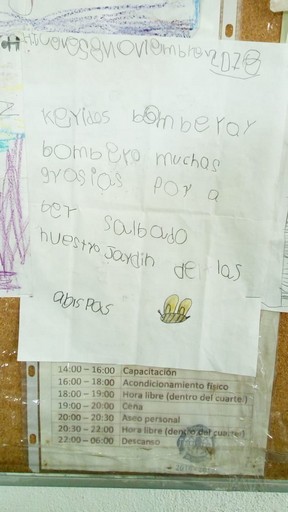 keridos bomberoy
bombero muchas
grasias por a
ber salbado
nuestro Jardin de las
abispas
14:00 – 16:00 Capacitación
16:00 – 18:00 Acondicionamiento físico
18:00 – 19:00 Hora libre (dentro del cuartel)
19:00 – 20:00 Cena
20:00 – 20:30 Aseo personal
20:30 – 22:00 Hora libre (dentro del cuartel)
22:00 – 06:00 Descanso